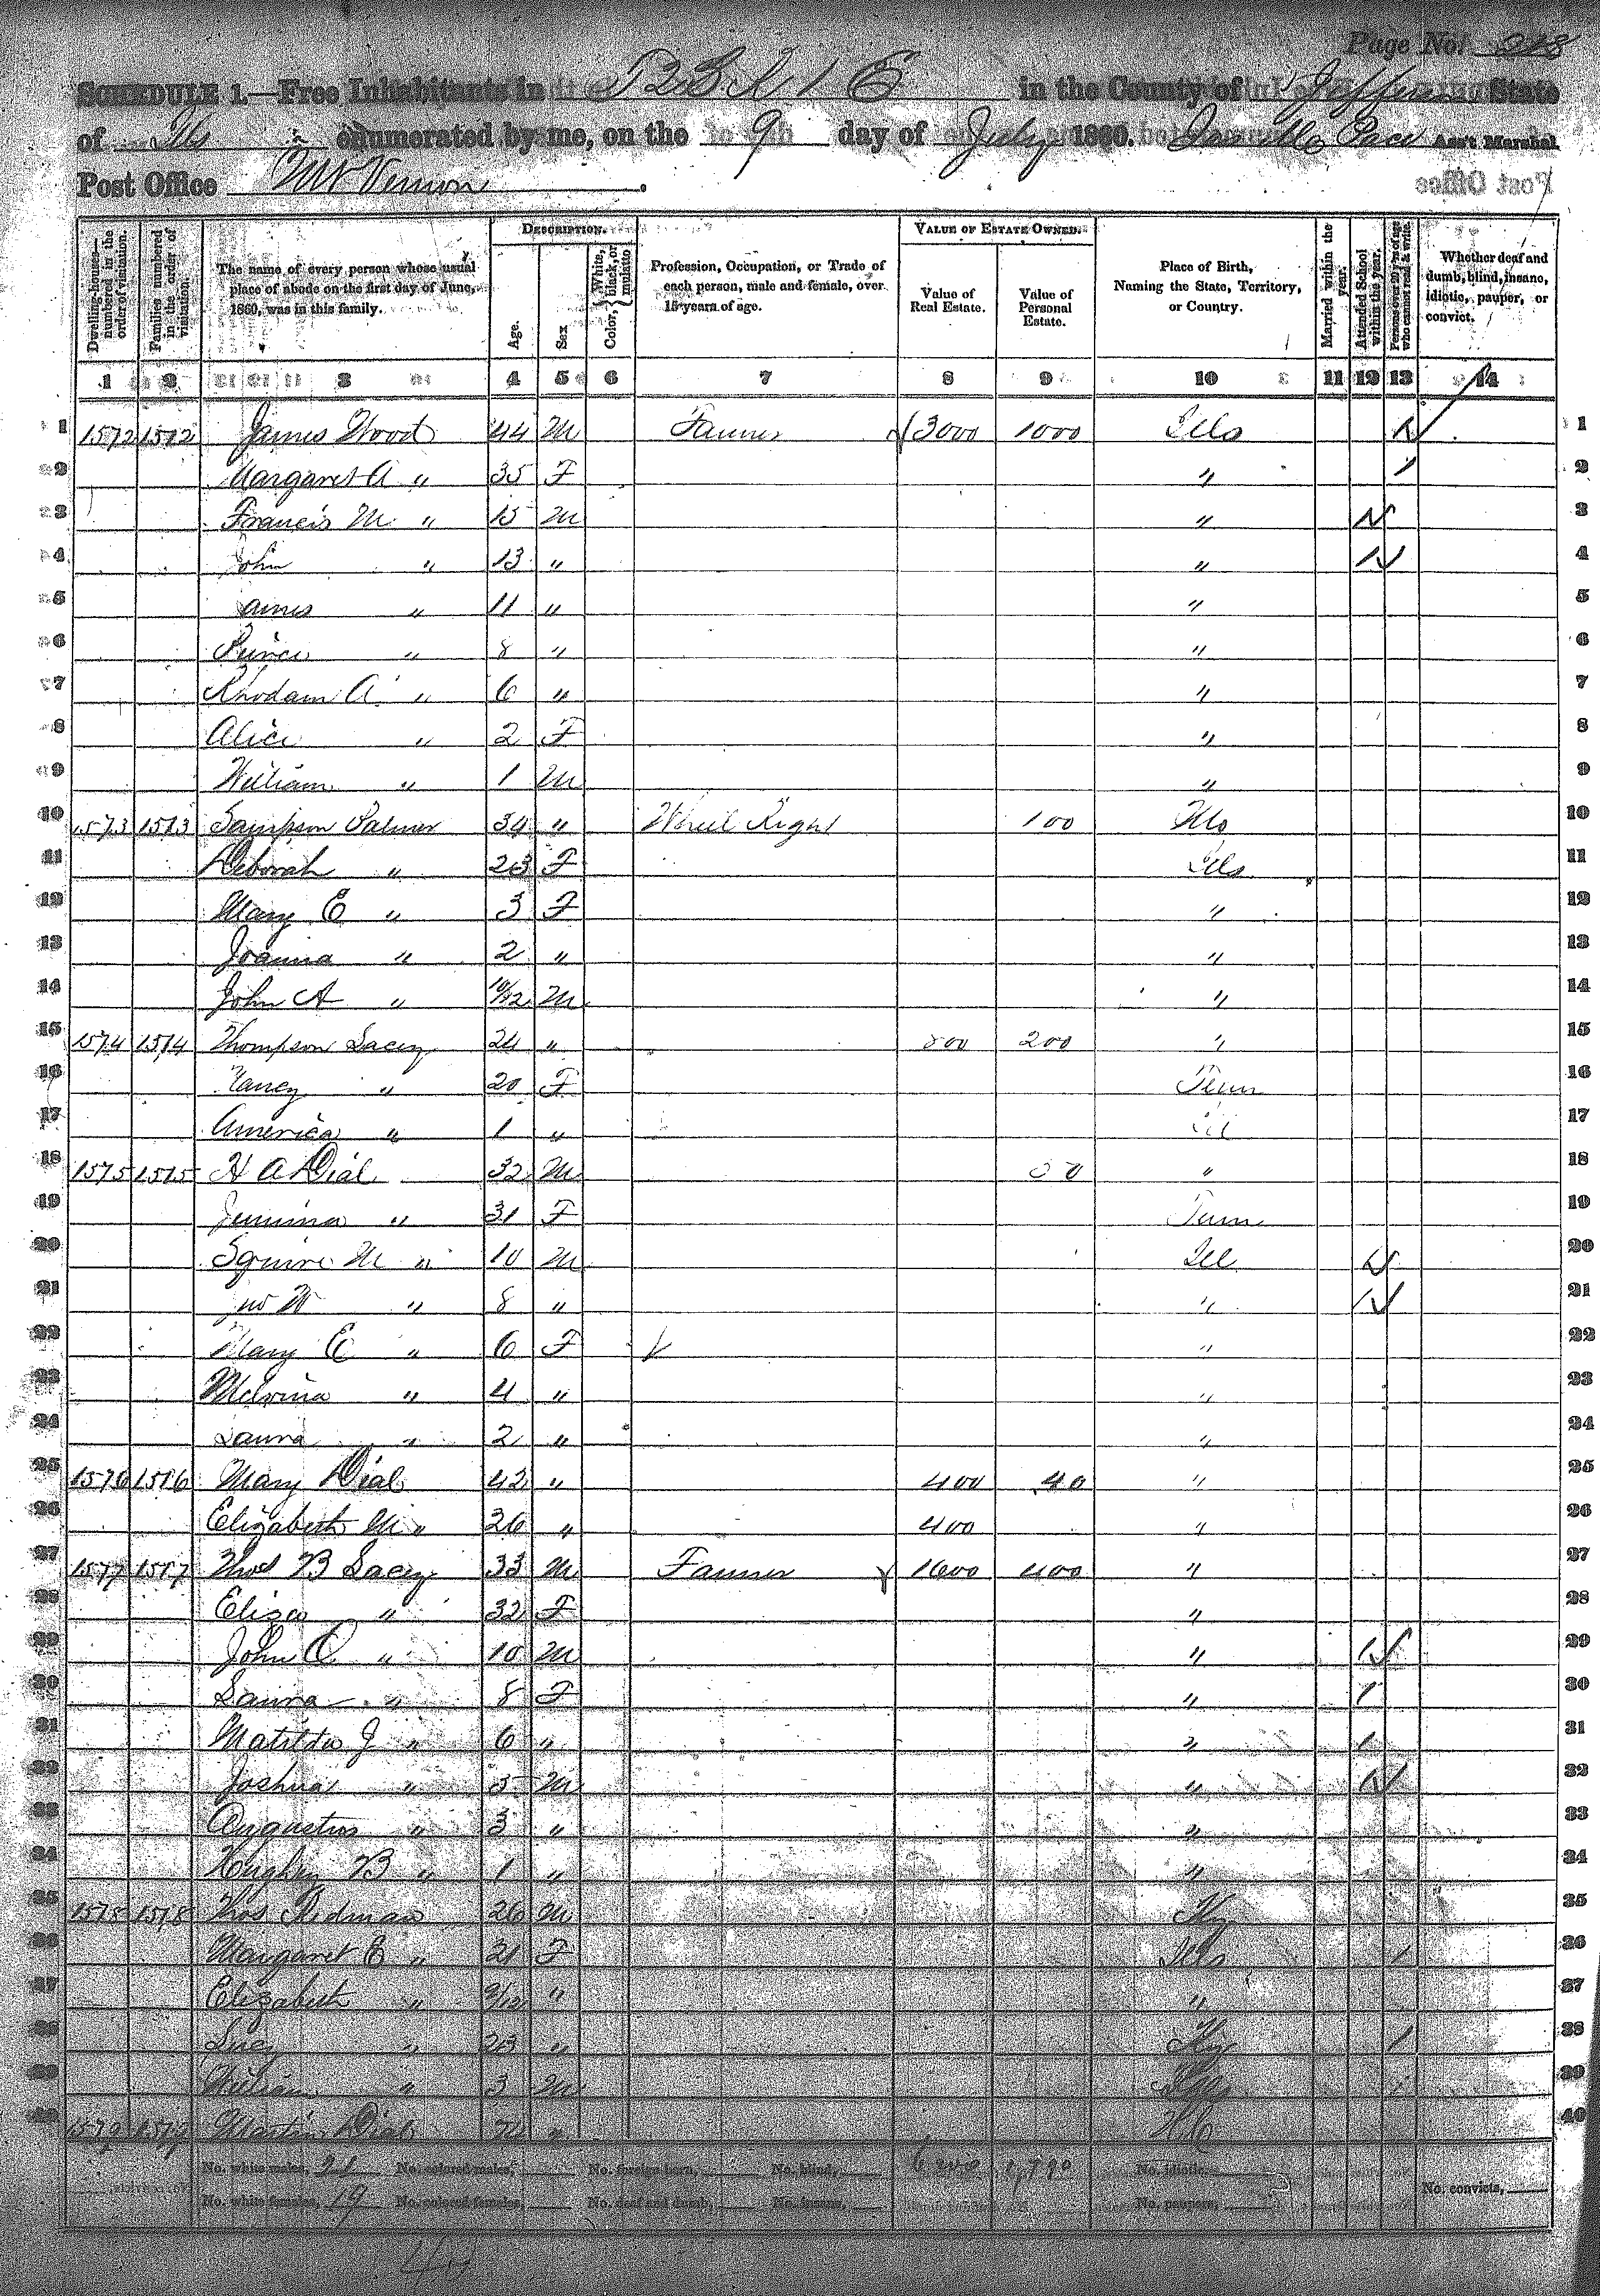 Page No. 218
SCHEDULE 1.—Free Inhabitants in T 2 S R 1 E in the County of Jefferson State
of Ills enumerated by me, on the 9 day of July 1860. Pace Ass't Marshal.
Post Office Mt Vernon.
DESCRIPTION. VALUE OF ESTATE OWNED.
Dwelling-houses—numbered in the order of visitation. Families numbered in the order of visitation. The name of every person whose usual place of abode on the first day of June, 1860, was in this family. Age. Sex Color, White, black, or mulatto. Profession, Occupation, or Trade of each person, male and female, over 15 years of age. Value of Real Estate. Value of Personal Estate. Place of Birth, Naming the State, Territory, or Country. Married within the year. Attended School within the year. Persons over 20 y'rs of age who cannot read & write. Whether deaf and dumb, blind, insane, idiotic, pauper, or convict.
1 2 3 4 5 6 7 8 9 10 11 12 13 14
1 1572 1572 James Wood 44 M Farmer 3000 1000 Ills 1 1
2 Margaret A " 35 F " 1 2
3 Francis M " 15 M " 1 3
4 John " 13 " " 1 4
5 James " 11 " " 5
6 " 8 " " 6
7 Rhodam A " 6 " " 7
8 Alice " 2 F " 8
9 William " 1 M " 9
10 1573 1573 Sampson Palmer 34 " Wheel Right 100 Mo 10
11 Deborah " 23 F Ills 11
12 Mary E " 3 F " 12
13 Joanna " 2 " " 13
14 John A " 10/12 M " 14
15 1574 1574 Thompson Lacey 24 " 800 200 " 15
16 Nancy " 20 F Tenn 16
17 America " 1 " Ill 17
18 1575 1575 H A Dial 32 M 50 " 18
19 Jemima " 31 F Tenn 19
20 Squire M " 10 M Ill 1 20
21 Jno W " 8 " " 1 21
22 Mary E " 6 F " 22
23 Melvina " 4 " " 23
24 Laura " 2 " " 24
25 1576 1576 Mary Dial 42 " 400 40 " 25
26 Elizabeth M " 26 " 400 " 26
27 1577 1577 Thos B Lacey 33 M Farmer 1600 400 " 27
28 Eliza " 32 F " 28
29 John Q " 10 M " 1 29
30 Laura " 8 F " 1 30
31 Matilda J " 6 " " 1 31
32 Joshua " 5 M " 1 32
33 Augustus " 3 " " 33
34 B " 1 " " 34
35 1578 1578 Thos Redman 26 M Ky 35
36 Margaret E " 21 F Ills 1 36
37 Elizabeth " 9/12 " " 37
38 Lucy " 23 " Ky 1 38
39 William " 3 M Ills 1 39
40 1579 1579 Martin Dial " N C 40
No. white males, 21 No. colored males, No. foreign born, No. blind, No. idiotic,
No. white females, 19 No. colored females, No. deaf and dumb, No. insane, No. paupers, No. convicts,
40